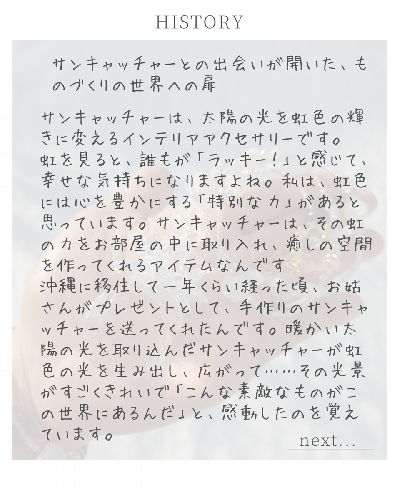 HISTORY
サンキャッチャーとの出会いが開いた、も
のづくりの世界への扉
サンキャッチャーは、太陽の光を虹色の輝
きに変えるインテリアアクセサリーです。
虹を見ると、誰もが「ラッキー！」と感じて、
幸せな気持ちになりますよね。私は、虹色
には心を豊かにする「特別な力」があると
思っています。サンキャッチャーは、その虹
の力をお部屋の中に取り入れ、癒しの空間
を作ってくれるアイテムなんです
沖縄に移住して一年くらい経った頃、お姑
さんがプレゼントとして、手作りのサンキャ
ッチャーを送ってくれたんです。暖かい太
陽の光を取り込んだサンキャッチャーが虹
色の光を生み出し、広がって……その光景
がすごくきれいで「こんな素敵なものがこ
の世界にあるんだ」と、感動したのを覚え
ています。
next...